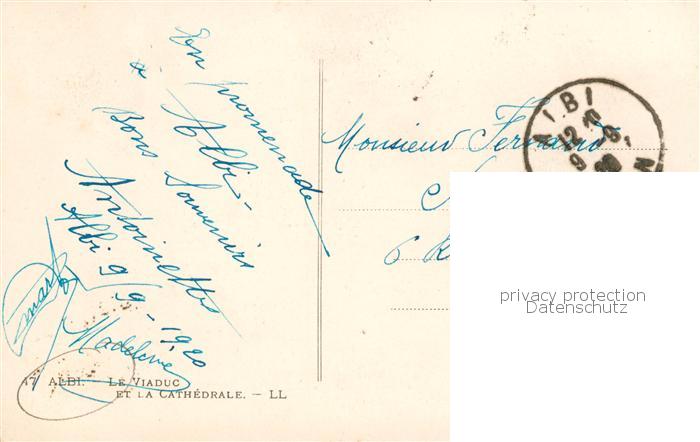 En promenade
à Albi -
Bons Souvenirs
Antoinette
Albi 9/9-1920
Marthe
Madeleine
Monsieur Fernand
6 R
ALBI
12
9
privacy protection
Datenschutz
47 ALBI. - LE VIADUC
ET LA CATHÉDRALE. - LL